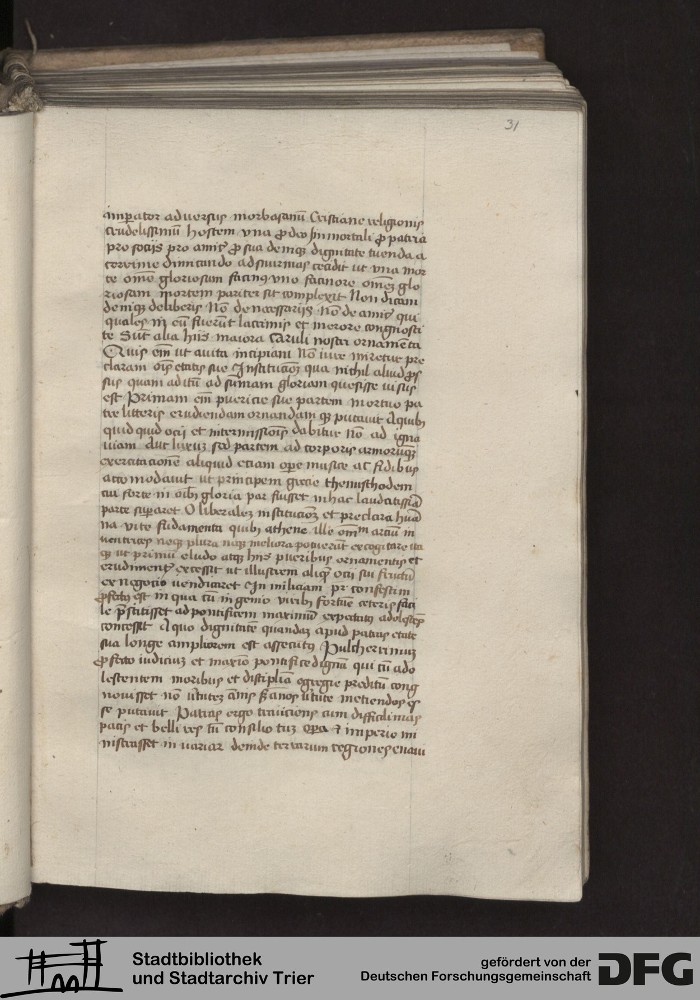 31
imperator adversus morbasanũ Cristiane religionis
crudelissimũ hostem una ꝓ deo immortali ꝓ patria
pro socijs pro amicis ꝓ sua denique dignitate tuenda a
dimicando ut una mor
te omẽ gloriosum facinus uno facinore omẽs glo
riosam mortem pariter sit complexus Non dicam
denique de liberis Nõ de necessarijs nõ de amicis qui
quales in eũ fuerũt lacrimis et merore congnosci
te Sũt alia hijs maiora Caruli nostri ornamẽta
Quis em̃ ut avita incipiam nõ iure miretur pre
claram ois etatis sue institucioẽm qua nichil aliud
suis quam aditũ ad sũmam gloriam quesisse visus
est Primam em̃ puericie sue partem mortuo pa
tre litteris erudiendam ornandam que putavit Aquibus
quid quid ocii et intermissionis dabitur nõ ad igna
viam Aut luxum sed partem ad corporis armorumque
exercitacionẽ aliquid etiam opere musice ac fidibus
accomodavit ut principem grecie themisthodem
cui forte in oibus gloria par fuisset in hac laudatissiã
parte superaret O liberales institucioẽs et preclara hũa
na vite fũdamenta quibus athene ille omniũ artium in
ventrices neque plura neque meliora potuerũt excogitare
que ut primũ eludo atque hijs pueribus ornamentis et
erudimentis excessit ut illustrem aliquem ocii sui fructũ
ex negocio vendicaret In miliciam confestim
ꝓfectus est in qua cũ ingenio viribus fortuna ceteris faci
le prestitisset ad pontificem maximũ
concessit Aquo dignitatẽ quandam apud patres etate
sua longe ampliorem est assecutus Pulcherrimum
ꝓfecto iudicium et maxio pontifice dignũ qui cũ ado
lescentem moribus et disciplina egregie preditũ cong
novisset nõ virtutem annis sed annos virtute metiendos
se putavit Patrias ergo cum difficilimas
pacis et belli res tũ consilio tum opera et imperio mi
nistrasset in varias deinde terrarum regiones
Stadtbibliothek
und Stadtarchiv Trier
gefördert von der
Deutschen Forschungsgemeinschaft
DFG